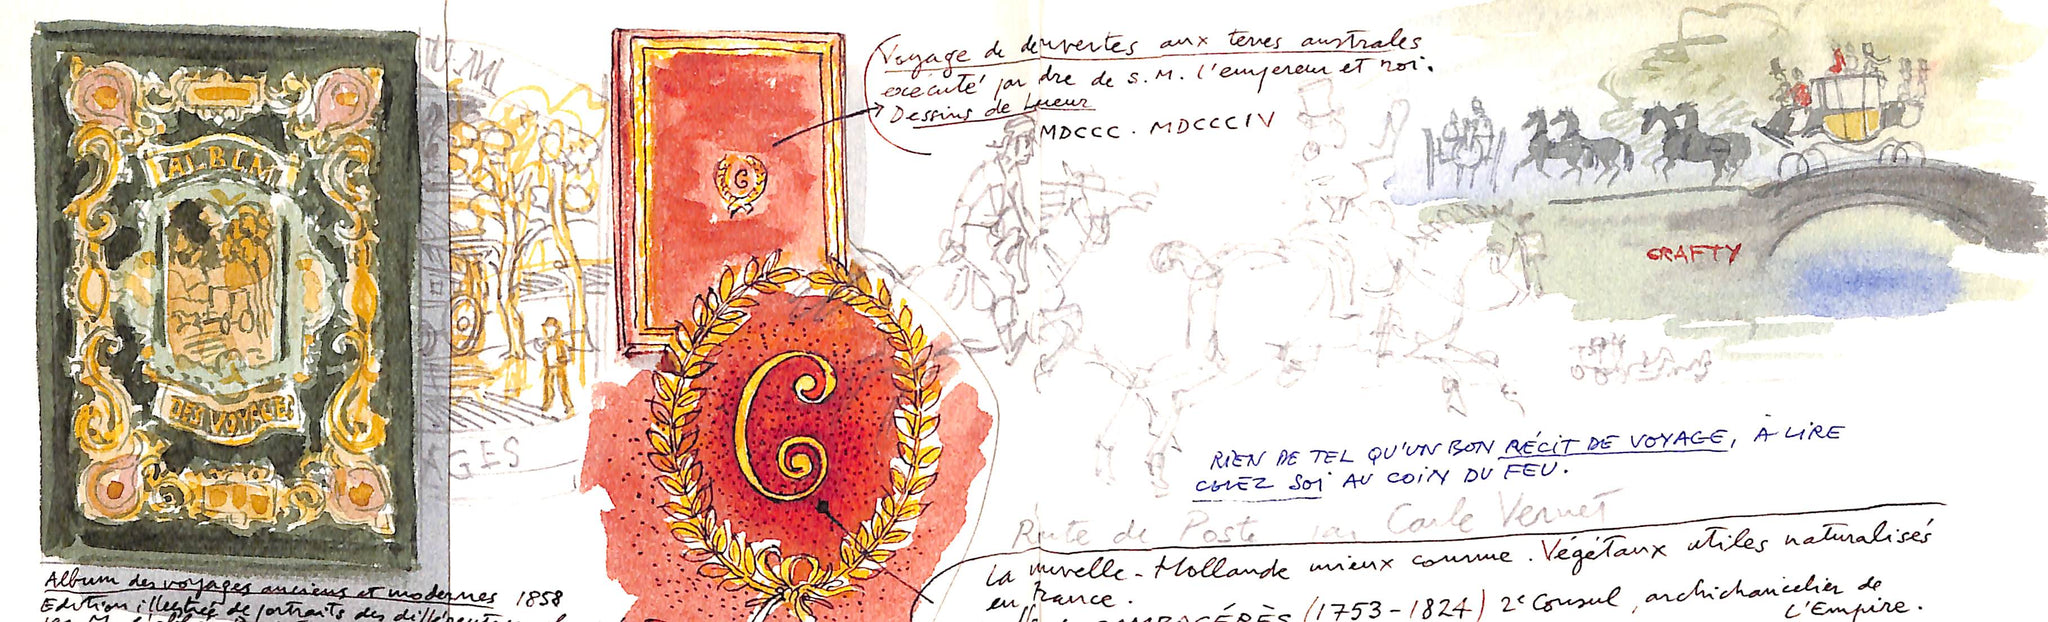 ALBUM
DES VOYAGES
GES
G
Voyage de découvertes aux terres australes
exécuté par dre de S. M. l'empereur et roi.
Dessins de Lueur
MDCCC . MDCCCIV
CRAFTY
RIEN DE TEL QU'UN BON RÉCIT DE VOYAGE, À LIRE
CHEZ SOI AU COIN DU FEU.
Route de Poste par Carle Vernet
La nouvelle-Hollande mieux connue. Végétaux utiles naturalisés
en France.
CAMBACÉRÈS (1753-1824) 2e Consul, archichancelier de
L'Empire.
Album des voyages anciens et modernes 1858
Edition illustrée de portraits des différents